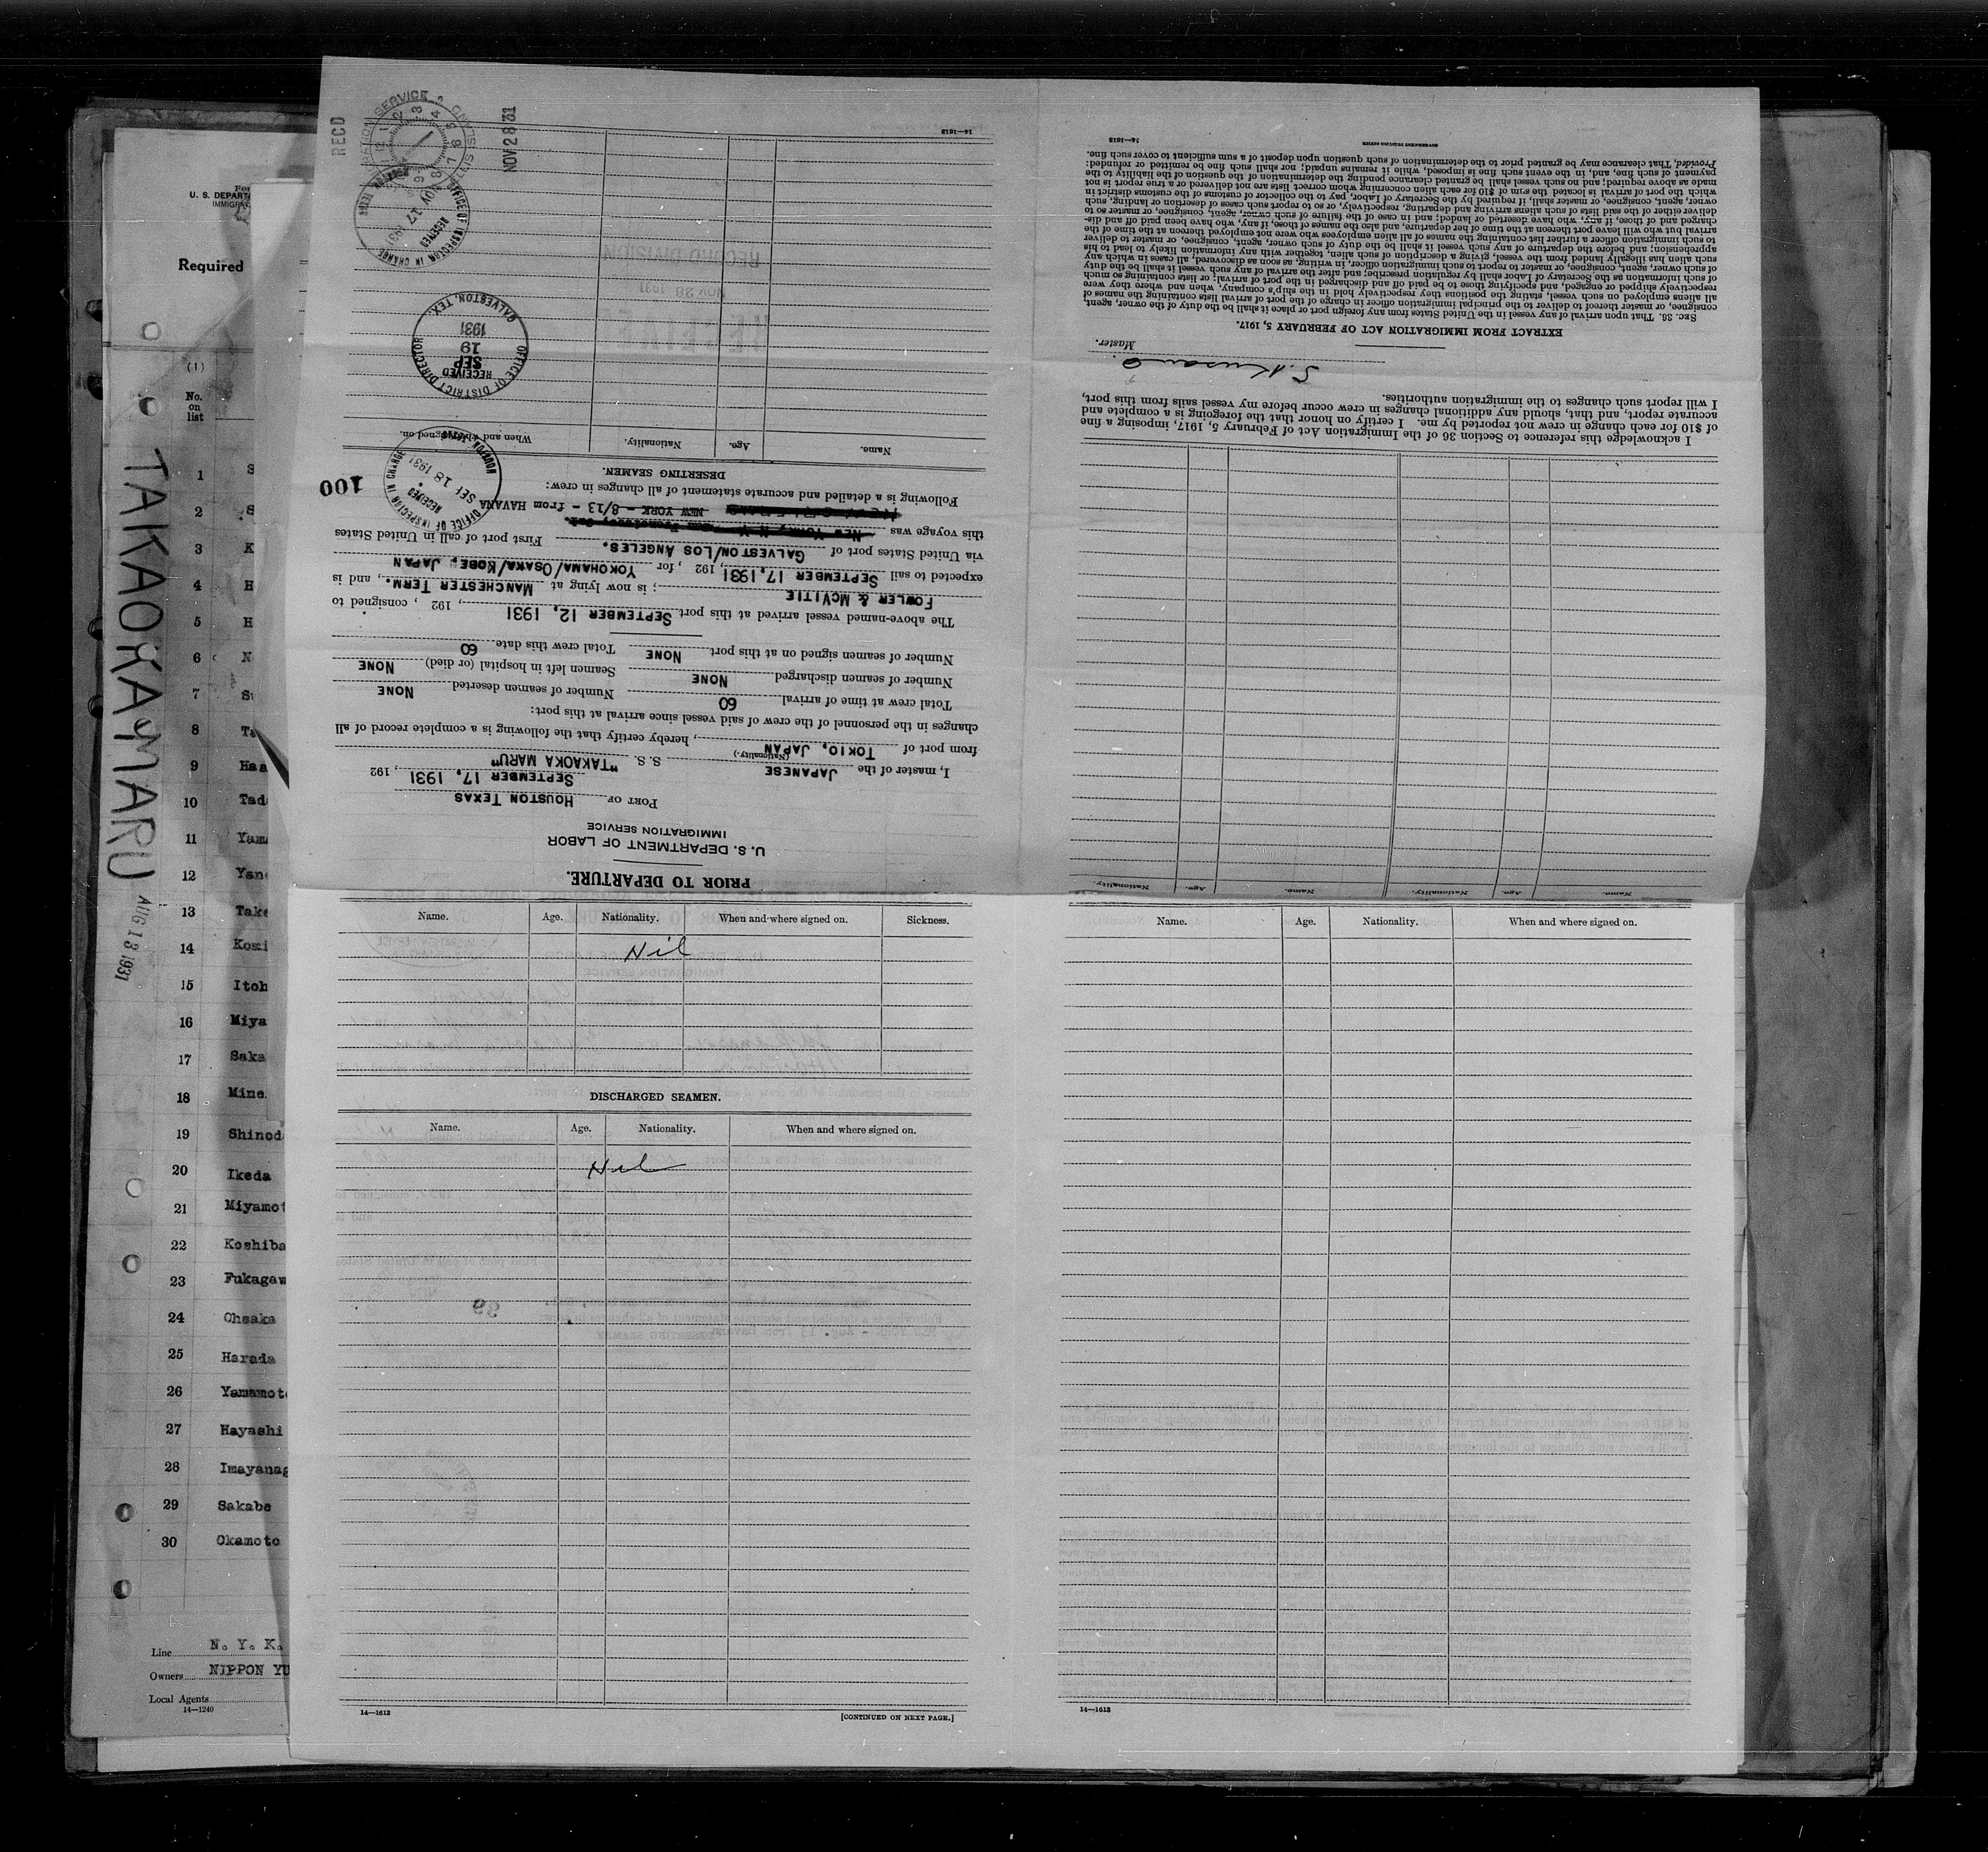 U. S. DEPART
Required
(1)
No.
on
list
TAKAOKA MARU
AUG 13 1931
1 S
2 S
3 K
4 H
5 H
6 N
7
8 Ta
9 Has
10 Tad
11 Yam
12 Yan
13 Take
14 Komi
15 Itoh
16 Miya
17 Saka
18 Mine
19 Shinod
20 Ikeda
21 Miyamot
22 Koshiba
23 Fukagaw
24 Ohsaka
25 Harada
26 Yamamoto
27 Hayashi
28 Imayanag
29 Sakabe
30 Okamoto
Line N. Y. K.
Owners NIPPON YU
Local Agents
14—1240
PRIOR TO DEPARTURE.
U. S. DEPARTMENT OF LABOR
IMMIGRATION SERVICE
PORT OF HOUSTON TEXAS
SEPTEMBER 17, 1931, 192
I, master of the JAPANESE S. S. "TAKAOKA MARU"
(Nationality.)
from port of TOKIO, JAPAN, hereby certify that the following is a complete record of all
changes in the personnel of the crew of said vessel since arrival at this port:
Total crew at time of arrival 60 Number of seamen deserted NONE
Number of seamen discharged NONE Seamen left in hospital (or died) NONE
Number of seamen signed on at this port NONE Total crew this date 60
The above-named vessel arrived at this port SEPTEMBER 12, 1931, 192 , consigned to
FOWLER & McVITIE; is now lying at MANCHESTER TERM., and is
expected to sail SEPTEMBER 17, 1931, 192 , for YOKOHAMA/OSAKA/KOBE, JAPAN
via United States port of GALVESTON/LOS ANGELES. First port of call in United States
this voyage was
NEW YORK - 8/13 - from HAVANA
Following is a detailed and accurate statement of all changes in crew:
100
DESERTING SEAMEN.
Name. Age. Nationality. When and where signed on.
OFFICE OF INSPECTOR IN CHARGE
RECEIVED
SEP 18 1931
HOUSTON, TEXAS
OFFICE OF DISTRICT DIRECTOR
RECEIVED
SEP
19
1931
GALVESTON, TEX.
OFFICE OF INSPECTOR IN CHARGE
RECEIVED
NOV 17 1931
RECEIVED
NOV 28 1931
RECORD DIVISION
RECD
IMMIGRATION SERVICE ELLIS ISLAND
NOV 28 31
14—1613
Name. Age. Nationality. Name. Age. Nationality.
I acknowledge this reference to Section 36 of the Immigration Act of February 5, 1917, imposing a fine
of $10 for each change in crew not reported by me. I certify on honor that the foregoing is a complete and
accurate report, and that, should any additional changes in crew occur before my vessel sails from this port,
I will report such changes to the immigration authorities.
Master.
EXTRACT FROM IMMIGRATION ACT OF FEBRUARY 5, 1917.
SEC. 36. That upon arrival of any vessel in the United States from any foreign port or place it shall be the duty of the owner, agent,
consignee, or master thereof to deliver to the principal immigration officer in charge of the port of arrival lists containing the names of
all aliens employed on such vessel, stating the positions they respectively hold in the ship's company, when and where they were
respectively shipped or engaged, and specifying those to be paid off and discharged in the port of arrival; or lists containing so much
of such information as the Secretary of Labor shall by regulation prescribe; and after the arrival of any such vessel it shall be the duty
of such owner, agent, consignee, or master to report to such immigration officer, in writing, as soon as discovered, all cases in which any
such alien has illegally landed from the vessel, giving a description of such alien, together with any information likely to lead to his
apprehension; and before the departure of any such vessel it shall be the duty of such owner, agent, consignee, or master to deliver
to such immigration officer a further list containing the names of all alien employees who were not employed thereon at the time of the
arrival but who will leave port thereon at the time of her departure, and also the names of those, if any, who have been paid off and dis-
charged and of those, if any, who have deserted or landed; and in case of the failure of such owner, agent, consignee, or master so to
deliver either of the said lists of such aliens arriving and departing, respectively, or so to report such cases of desertion or landing, such
owner, agent, consignee, or master, shall, if required by the Secretary of Labor, pay to the collector of customs of the customs district in
which the port of arrival is located the sum of $10 for each alien concerning whom correct lists are not delivered or a true report is not
made as above required; and no such vessel shall be granted clearance pending the determination of the question of the liability to the
payment of such fine, and, in the event such fine is imposed, while it remains unpaid; nor shall such fine be remitted or refunded:
Provided, That clearance may be granted prior to the determination of such question upon deposit of a sum sufficient to cover such fine.
14—1613 GOVERNMENT PRINTING OFFICE
Name. Age. Nationality. When and where signed on. Sickness.
Nil
DISCHARGED SEAMEN.
Name. Age. Nationality. When and where signed on.
Nil
39
14—1613
[CONTINUED ON NEXT PAGE.]
Name. Age. Nationality. When and where signed on.
14—1613